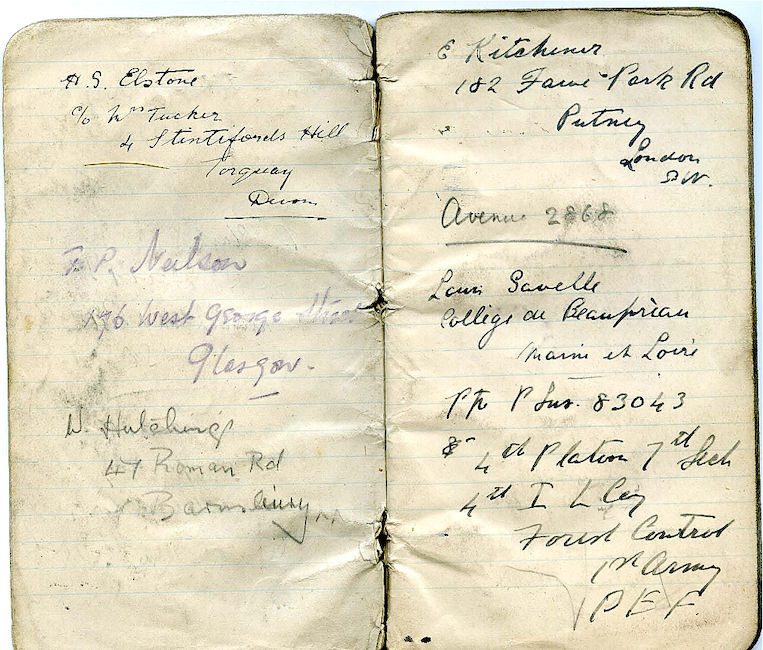 H. S. Elstone
c/o Mrs Tucker
4 Stentifords Hill
Torquay
Devon
F. P. Neilson
176 West George Street
Glasgow.
W. Hutchings
47 Roman Rd
Barnsbury N
E Kitchener
182 Fawe Park Rd
Putney
London
S.W.
Avenue 2868
Louis Gavelle
Collège de Beaupréau
Maine et Loire
Pte P 83043
4th Platoon 7th Sect
4th I L Coy
Forest Control
1st Army
B E F